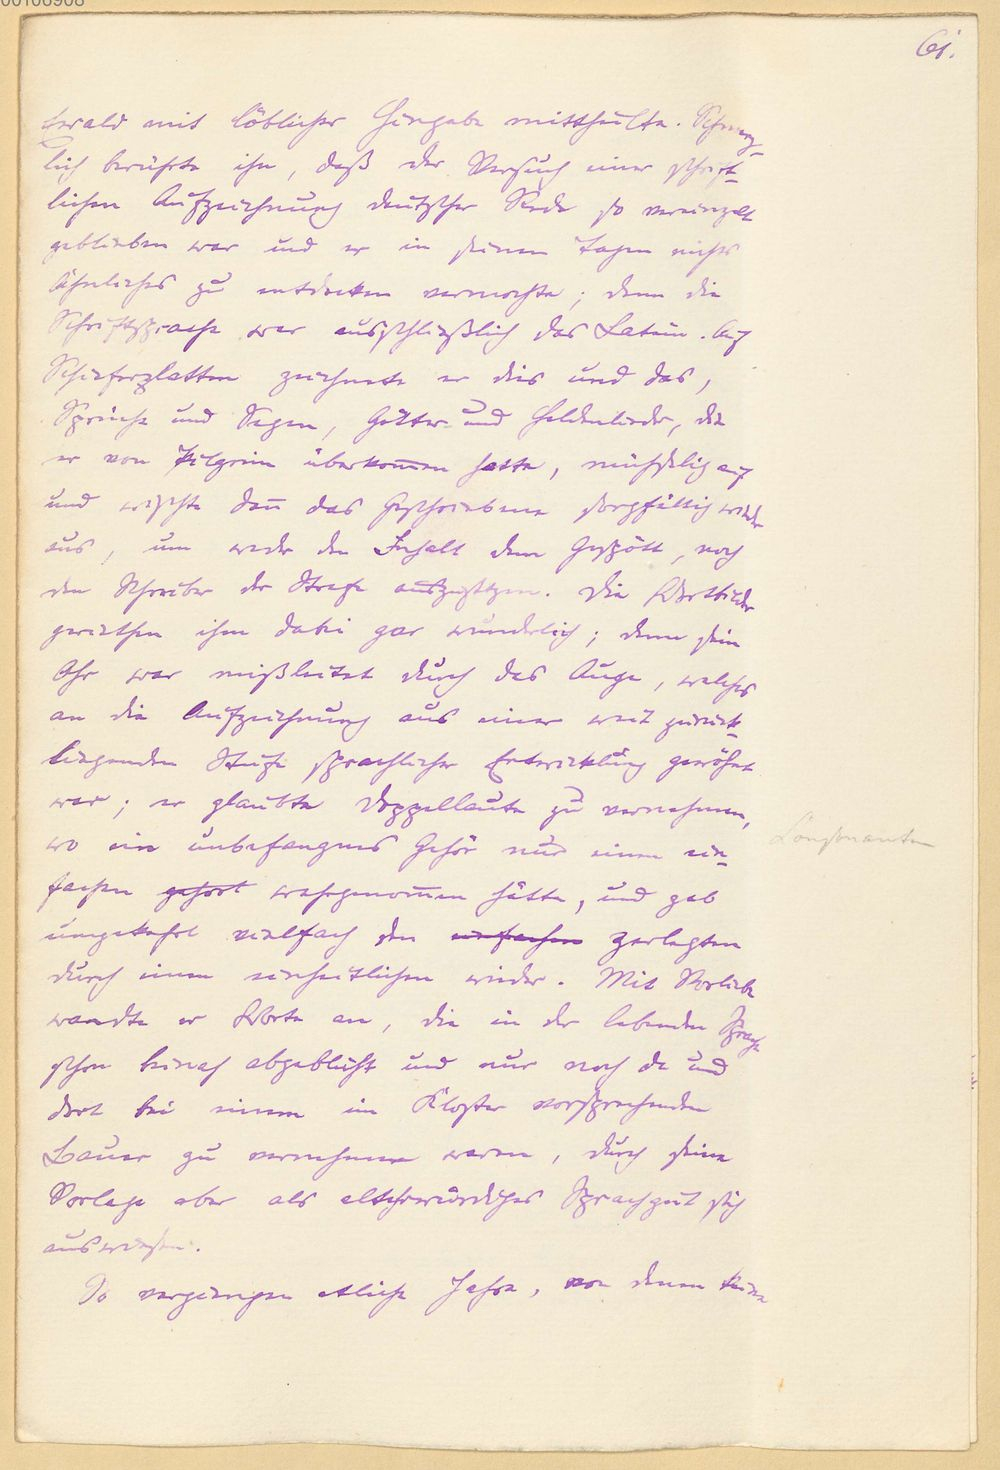 00106908
61.
Ewald mit löblicher Hingabe mittheilte. Schmerz-
lich berührte ihn, daß der Versuch einer schrift-
lichen Aufzeichnung deutscher Rede so vereinzelt
geblieben war und er in seinen Tagen nichts
Ähnliches zu entdecken vermochte; denn die
Schriftsprache war ausschließlich das Latein. Auf
Schieferplatten zeichnete er dies und das,
Sprüche und Segen, Götter- und Heldenlieder, die
er von Pilgrim überkom̅en hatte, mühselig auf
und wischte dan̅ das Geschriebene sorgfältig wieder
aus, um weder den Inhalt dem Gespött, noch
den Schreiber der Strafe auszusetzen. Die Wortbilder
geriethen ihm dabei gar wunderlich; denn sein
Ohr war mißleitet durch das Auge, welches
an die Aufzeichnung aus einer weit zurück-
liegenden Stufe sprachlicher Entwicklung gewöhnt
war; er glaubte Doppellaute zu vernehmen,
wo ein unbefangnes Gehör nur einen ein-
Consonanten
fachen gehört wahrgenom̅en hätte, und gab
umgekehrt vielfach den einfachen zerlegten
durch einen einheitlichen wieder. Mit Vorliebe
wandte er Worte an, die in der lebenden Sprache
schon beinah abgeblüht und nur noch da und
dort bei einem im Kloster vorsprechenden
Bauer zu vernehmen waren, durch seine
Vorlage aber als altehrwürdiges Sprachgut sich
auswiesen.
So vergiengen etliche Jahre, von denen keines